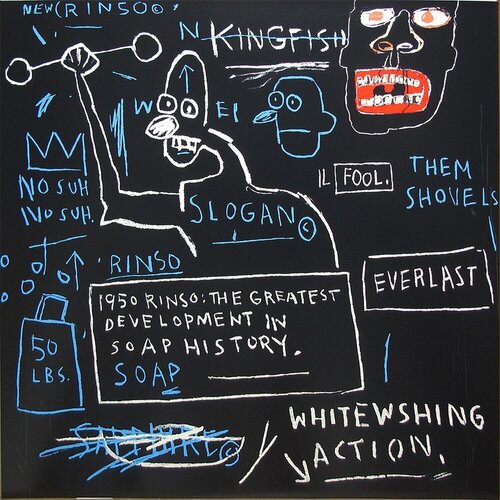 NEW (RINSO©
N KINGFISH
W EI
NO SUH
NO SUH.
SLOGAN©
IL FOOL.
THEM
SHOVELS
RINSO
EVERLAST
1950 RINSO: THE GREATEST
DEVELOPMENT IN
SOAP HISTORY.
SOAP
50
LBS.
WHITEWSHING
ACTION.